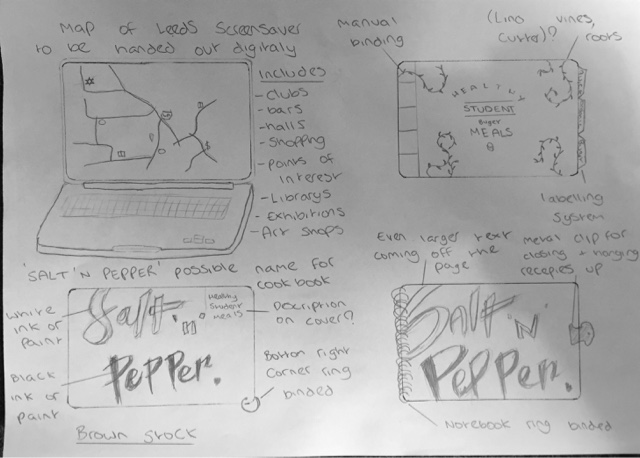 Map of Leeds Screensaver
to be handed out digitaly
Includes
- clubs
- bars
- halls
- shopping
- points of
interest
- Librarys
- Exhibitions
- Art shops
Manual
binding
(Lino vines,
cutter)? roots
HEALTHY
STUDENT
MEALS
labelling
system
'SALT 'N PEPPER' possible name for
cookbook
White
ink or
paint
Black
ink or
paint
Salt
'n'
Pepper.
Healthy
Student
Meals
Description
on cover?
Bottom right
corner ring
binded
Brown stock
Even larger text
coming off the
page
Metal clip for
closing + hanging
recepies up
Salt 'N'
Pepper.
Notebook ring binded